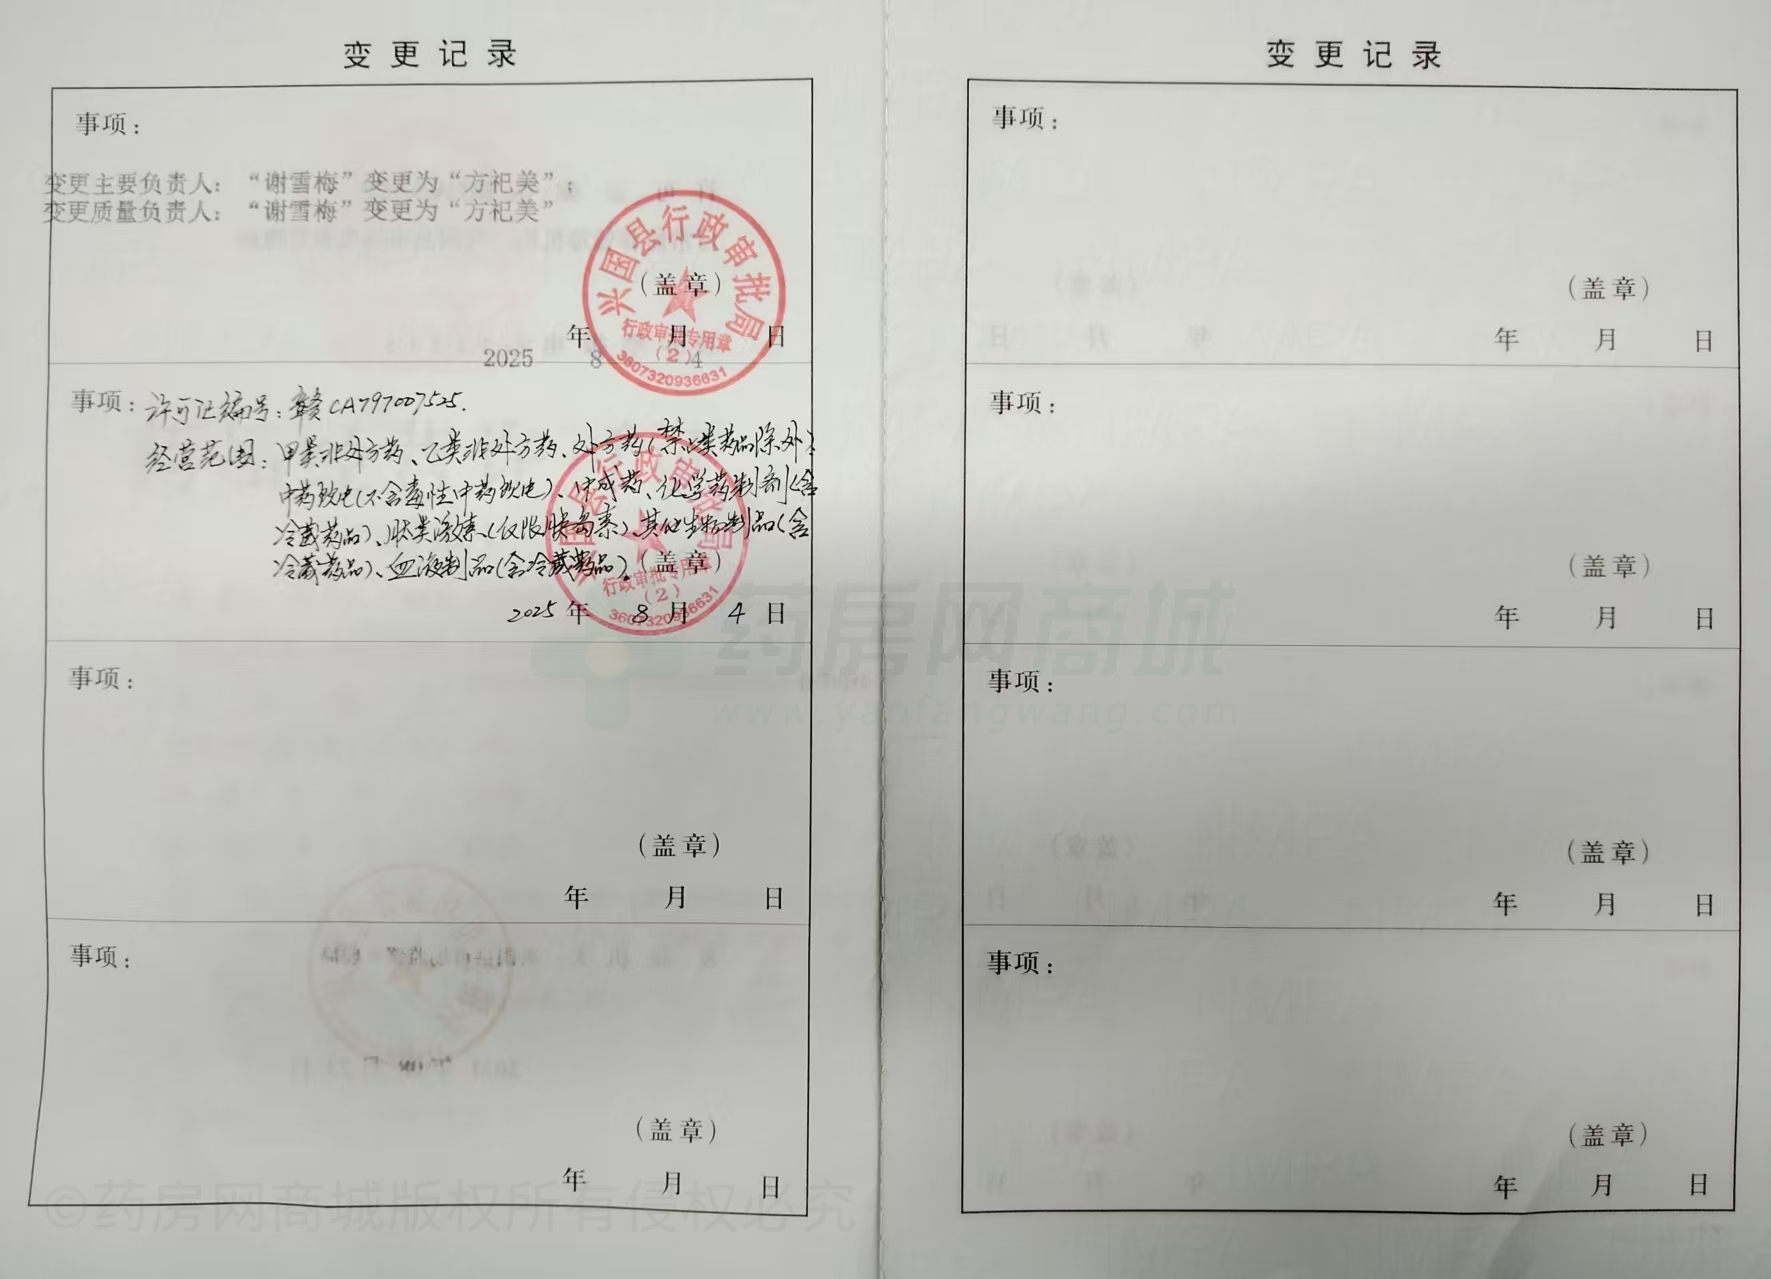 变更记录
事项：
变更主要负责人：“谢雪梅”变更为“方祀美”；
变更质量负责人：“谢雪梅”变更为“方祀美”
兴国县行政审批局
（盖章）
行政审批专用章
（2）
3607320936631
年 月 日
2025 8 4
事项：许可证编号：赣CA797007525.
经营范围：甲类非处方药、乙类非处方药、处方药（禁止类药品除外）：
中药饮片（不含毒性中药饮片）、中成药、化学药制剂（含
冷藏药品）、肽类激素（仅限胰岛素）、其他生物制品（含
冷藏药品）、血液制品（含冷藏药品）。（盖章）
兴国县行政审批局
行政审批专用章
（2）
3607320936631
2025年 8月 4日
事项：
（盖章）
年 月 日
事项：
（盖章）
年 月 日
变更记录
事项：
（盖章）
年 月 日
事项：
（盖章）
年 月 日
事项：
（盖章）
年 月 日
事项：
（盖章）
年 月 日
药房网商城
www.yaofangwang.com
©药房网商城版权所有侵权必究